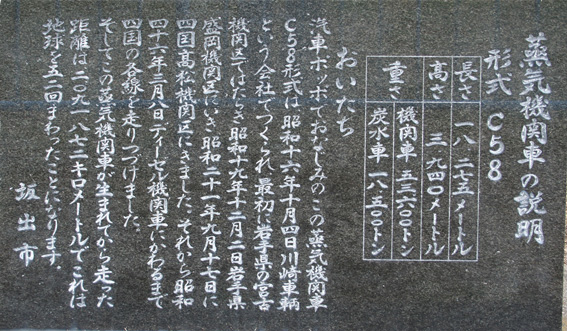 蒸気機関車の説明
形式 C58
長さ 一八.二七五メートル
高さ 三.九四〇メートル
重さ 機関車 五三.六〇〇トン
炭水車 一八.五〇〇トン
おいたち
汽車ポッポでおなじみのこの蒸気機関車
C58形式は昭和十六年十月四日川崎車輌
という会社でつくられ、最初に岩手県の宮古
機関区ではたらき昭和十九年十二月二日岩手県
盛岡機関区にいき、昭和二十一年九月十七日に
四国高松機関区にきました、それから昭和
四十六年三月八日ディーゼル機関車にかわるまで
四国の各線を走りつづけました。
そしてこの蒸気機関車が生まれてから走った
距離は二〇九一八七二キロメートルでこれは
地球を五二回まわったことになります。
坂出市